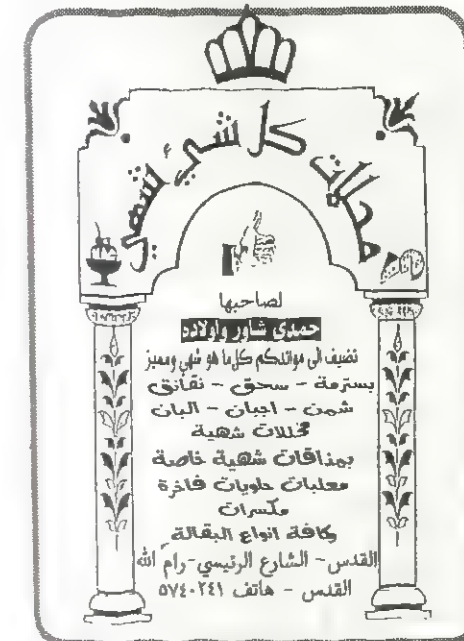 محلات كل شيء شهي
لصاحبها
حمدي شاور واولاده
نضيف الى موائدكم كل ما هو شهي ومميز
بسترمة - سحق - نقانق
شمن - اجبان - البان
مخللات شهية
بمذاقات شهية خاصة
معلبات حلويات فاخرة
مكسرات
وكافة انواع البقالة
القدس - الشارع الرئيسي - رام الله
القدس - هاتف ٥٧٤٠٢٤١